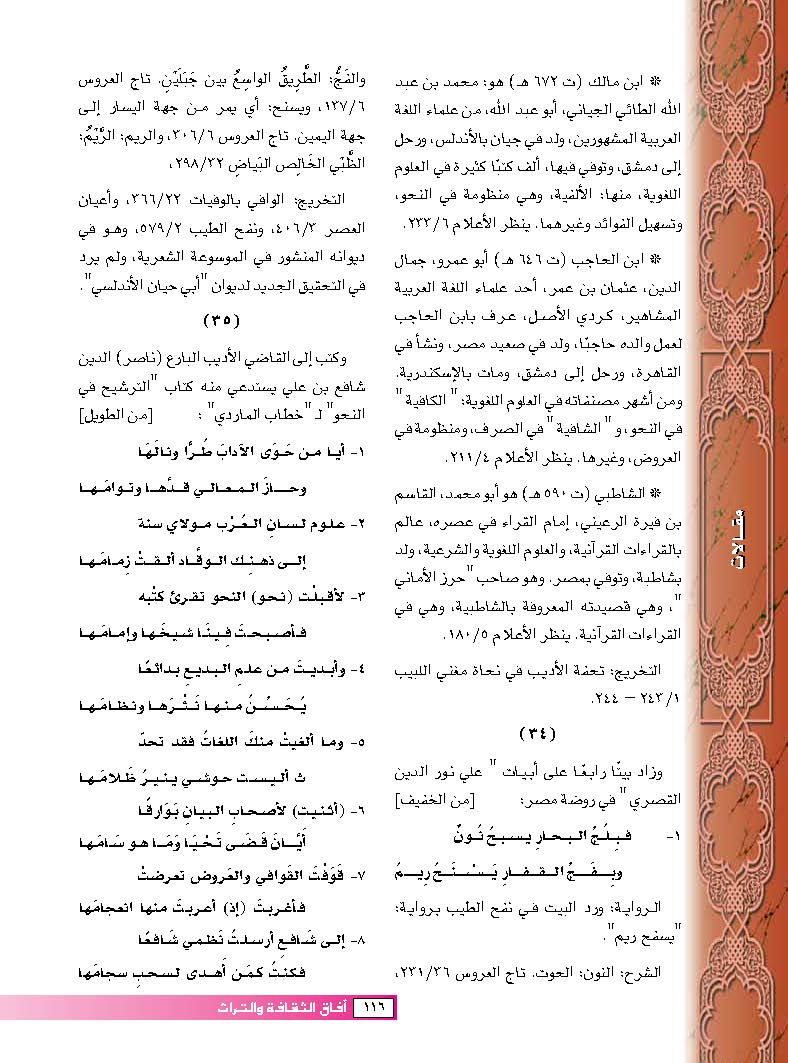 * ابن مالك (ت ٦٧٢ هـ) هو: محمد بن عبد
الله الطائي الجياني، أبو عبد الله، من علماء اللغة
العربية المشهورين، ولد في جيان بالأندلس، ورحل
إلى دمشق، وتوفي فيها، ألف كتبًا كثيرة في العلوم
اللغوية، منها: الألفية، وهي منظومة في النحو،
وتسهيل الفوائد وغيرهما. ينظر الأعلام ٢٣٣/٦.
* ابن الحاجب (ت ٦٤٦ هـ) أبو عمرو، جمال
الدين، عثمان بن عمر، أحد علماء اللغة العربية
المشاهير، كردي الأصل، عرف بابن الحاجب
لعمل والده حاجبًا، ولد في صعيد مصر، ونشأ في
القاهرة، ورحل إلى دمشق، ومات بالإسكندرية.
ومن أشهر مصنفاته في العلوم اللغوية: " الكافية "
في النحو، و " الشافية " في الصرف، ومنظومة في
العروض، وغيرها. ينظر الأعلام ٢١١/٤.
* الشاطبي (ت ٥٩٠ هـ) هو أبو محمد، القاسم
بن فيرة الرعيني، إمام القراء في عصره، عالم
بالقراءات القرآنية، والعلوم اللغوية والشرعية، ولد
بشاطبة، وتوفي بمصر. وهو صاحب "حرز الأماني
"، وهي قصيدته المعروفة بالشاطبية، وهي في
القراءات القرآنية. ينظر الأعلام ١٨٠/٥.
التخريج: تحفة الأديب في نحاة مغني اللبيب
٢٤٣/١ – ٢٤٤.
(٣٤)
وزاد بيتًا رابعًا على أبيات " علي نور الدين
القصري" في روضة مصر: [من الخفيف]
١- فبِلُجِّ البحارِ يسبحُ نُونٌ
وبِفَجِّ القفارِ يَسْنَحُ رِيمُ
الرواية: ورد البيت في نفح الطيب برواية:
"يسفح ريم".
الشرح: النون: الحوت. تاج العروس ٢٣١/٣٦،
والفَجُّ: الطَّرِيقُ الواسِعُ بين جَبَلَيْنِ. تاج العروس
١٣٧/٦، ويسنح: أي يمر من جهة اليسار إلى
جهة اليمين. تاج العروس ٣٠٦/٦، والريم: الرَّيْمُ:
الظَّبْي الخَالِص البَياضِ ٢٩٨/٣٢،
التخريج: الوافي بالوفيات ٣٦٦/٢٢، وأعيان
العصر ٤٠٦/٣، ونفح الطيب ٥٧٩/٢، وهو في
ديوانه المنشور في الموسوعة الشعرية، ولم يرد
في التحقيق الجديد لديوان "أبي حيان الأندلسي".
(٣٥)
وكتب إلى القاضي الأديب البارع (ناصر) الدين
شافع بن علي يستدعي منه كتاب "الترشيح في
النحو" لـ "خطاب الماردي" : [من الطويل]
١- أيا من حَوَى الآدابَ طُرًّا ونالَهَا
وحازَ المعالي فذَّها وتوامَها
٢- علوم لسانِ العُرْب مولاي سنة
إلى ذهنِك الوقَّاد ألقتْ زِمامَها
٣- لأقبلْت (نحو) النحو تقرئ كتْبه
فأصبحتَ فِينَا شيخَها وإمامَها
٤- وأبديتَ من علمِ البديعِ بدائعًا
يُحَسِّنُ منها نَثْرَها ونظامَها
٥- وما ألغيتْ منكَ اللغاتُ فقد تحدّ
ث أليست حوشي ينيرُ ظَلامَها
٦- (أثنيت) لأصحابِ البيانِ بَوَارقًا
أَيَّانَ قَضَى تَحْيَا وَمَا هو سَامَها
٧- قَوَفْتَ القَوافي والعَروض تعرضتْ
فأغربتَ (إذ) أعربتَ منها انعجامَها
٨- إلى شَافعٍ أرسلتُ نَظمي شَافعًا
فكنتُ كمَن أَهدى لسحبٍ سجامَها
مقالات
١١٦ آفاق الثقافة والتراث